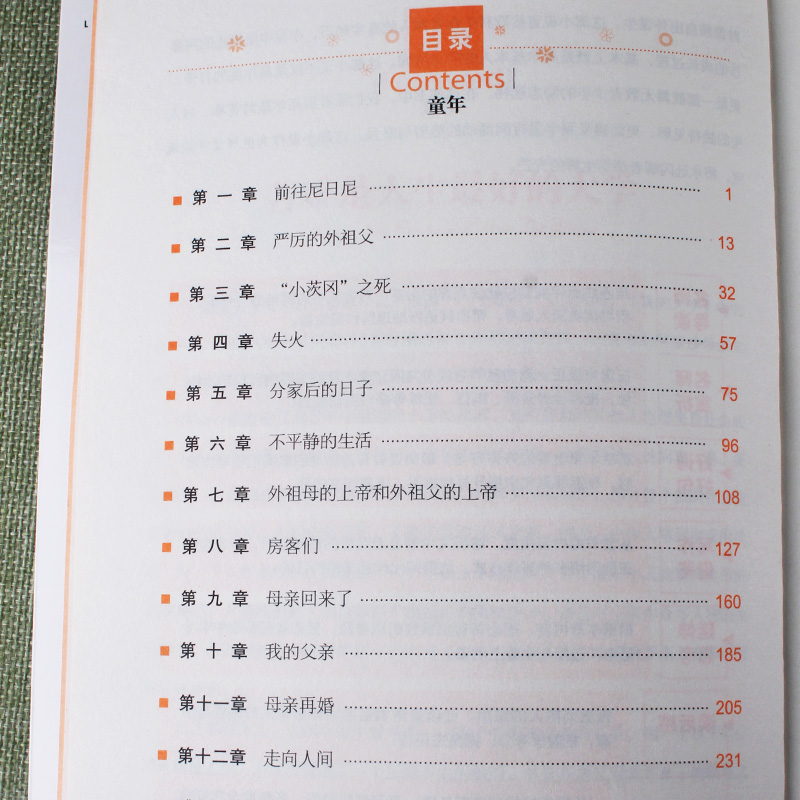 目录
Contents
童年
第一章 前往尼日尼 1
第二章 严厉的外祖父 13
第三章 “小茨冈”之死 32
第四章 失火 57
第五章 分家后的日子 75
第六章 不平静的生活 96
第七章 外祖母的上帝和外祖父的上帝 108
第八章 房客们 127
第九章 母亲回来了 160
第十章 我的父亲 185
第十一章 母亲再婚 205
第十二章 走向人间 231